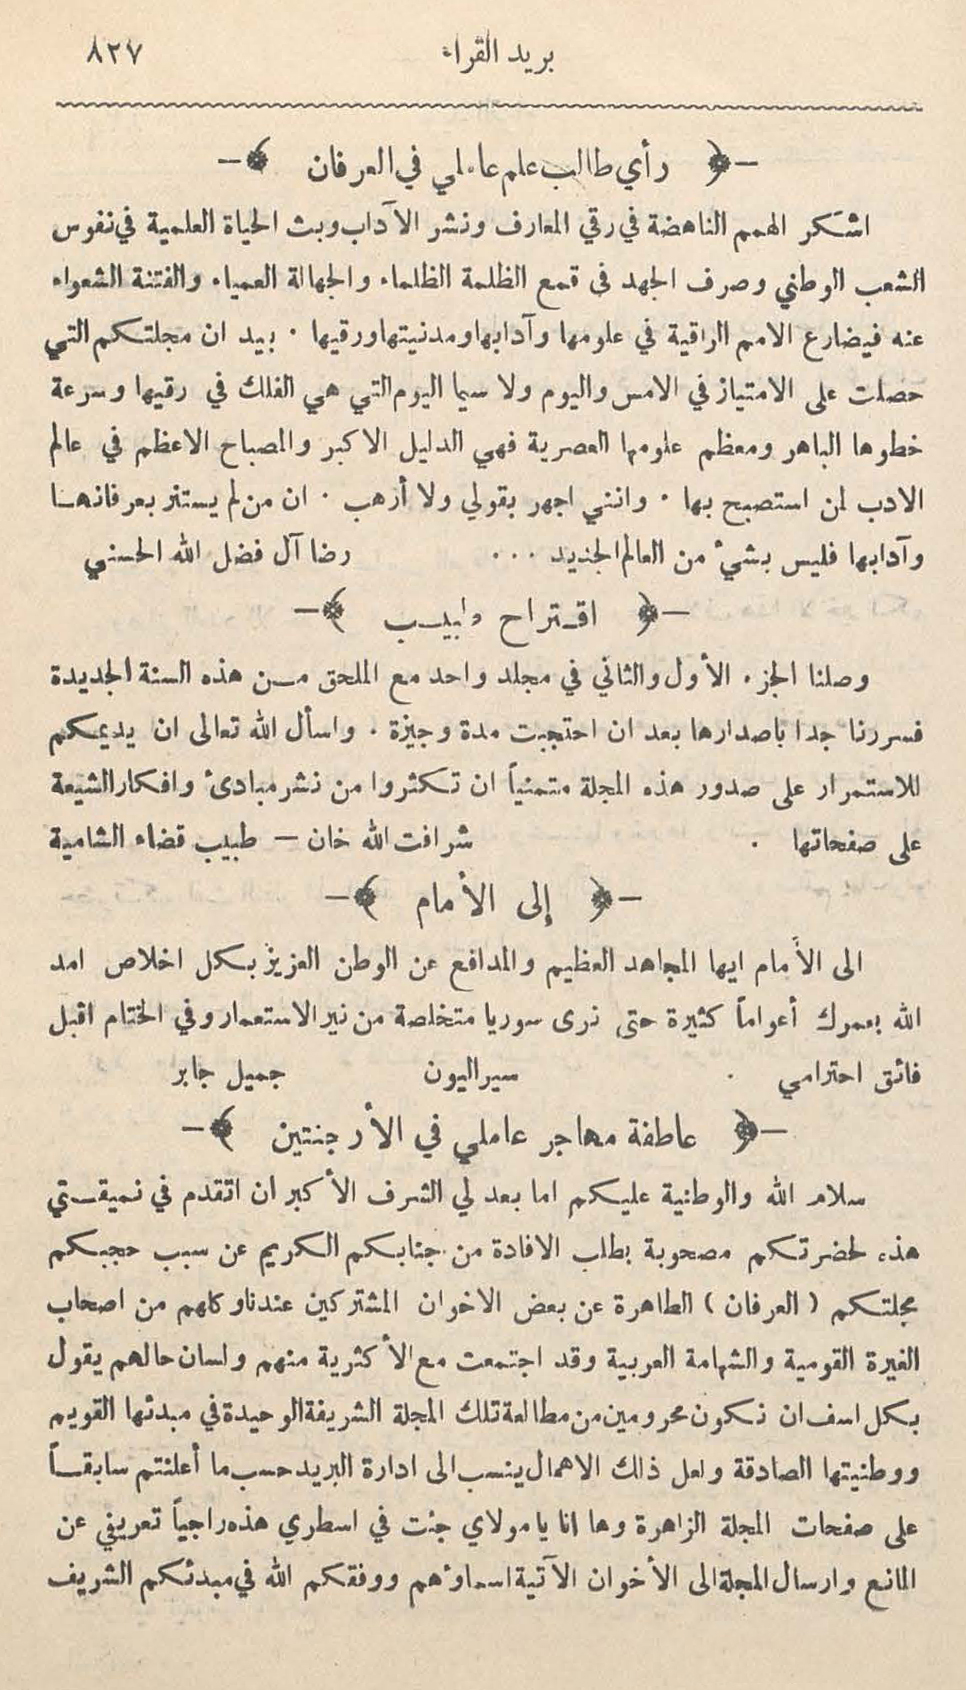 بريد القراء ٨٢٧
رأي طالب علم عاملي في العرفان
اشكر الهمم الناهضة في رقي المعارف ونشر الآداب وبث الحياة العلمية في نفوس
الشعب الوطني وصرف الجهد في قمع الظلمة الظلماء والجهالة العمياء والفتنة الشعواء
عنه فيضارع الامم الراقية في علومها وآدابها ومدنيتها ورقيها . بيد ان مجلتكم التي
حصلت على الامتياز في الامس واليوم ولا سيما اليوم التي هي الفلك في رقيها وسرعة
خطوها الباهر ومعظم علومها العصرية فهي الدليل الاكبر والمصباح الاعظم في عالم
الادب لمن استصبح بها . وانني اجهر بقولي ولا أرهب . ان من لم يستنر بعرفانها
وآدابها فليس بشيء من العالم الجديد ... رضا آل فضل الله الحسني
اقتراح طبيب
وصلنا الجزء الأول والثاني في مجلد واحد مع الملحق من هذه السنة الجديدة
فسررنا جدا باصدارها بعد ان احتجبت مدة وجيزة . واسأل الله تعالى ان يديمكم
للاستمرار على صدور هذه المجلة متمنياً ان تكثروا من نشر مبادئ وافكار الشيعة
على صفحاتها . شرافت الله خان — طبيب قضاء الشامية
إلى الأمام
الى الأمام ايها المجاهد العظيم والمدافع عن الوطن العزيز بكل اخلاص امد
الله بعمرك أعواماً كثيرة حتى نرى سوريا متخلصة من نير الاستعمار وفي الختام اقبل
فائق احترامي . سيراليون جميل جابر
عاطفة مهاجر عاملي في الأرجنتين
سلام الله والوطنية عليكم اما بعد لي الشرف الأكبر ان اتقدم في نميقتي
هذه لحضرتكم مصحوبة بطلب الافادة من جنابكم الكريم عن سبب حجبكم
مجلتكم ( العرفان ) الطاهرة عن بعض الاخوان المشتركين عندنا وكلهم من اصحاب
الغيرة القومية والشهامة العربية وقد اجتمعت مع الأكثرية منهم ولسان حالهم يقول
بكل اسف ان نكون محرومين من مطالعة تلك المجلة الشريفة الوحيدة في مبدئها القويم
ووطنيتها الصادقة ولعل ذلك الاهمال ينسب الى ادارة البريد حسب ما أعلنتم سابقاً
على صفحات المجلة الزاهرة وها انا يا مولاي جئت في اسطري هذه راجياً تعريفي عن
المانع وارسال المجلة الى الأخوان الآتية اسماؤهم ووفقكم الله في مبدئكم الشريف